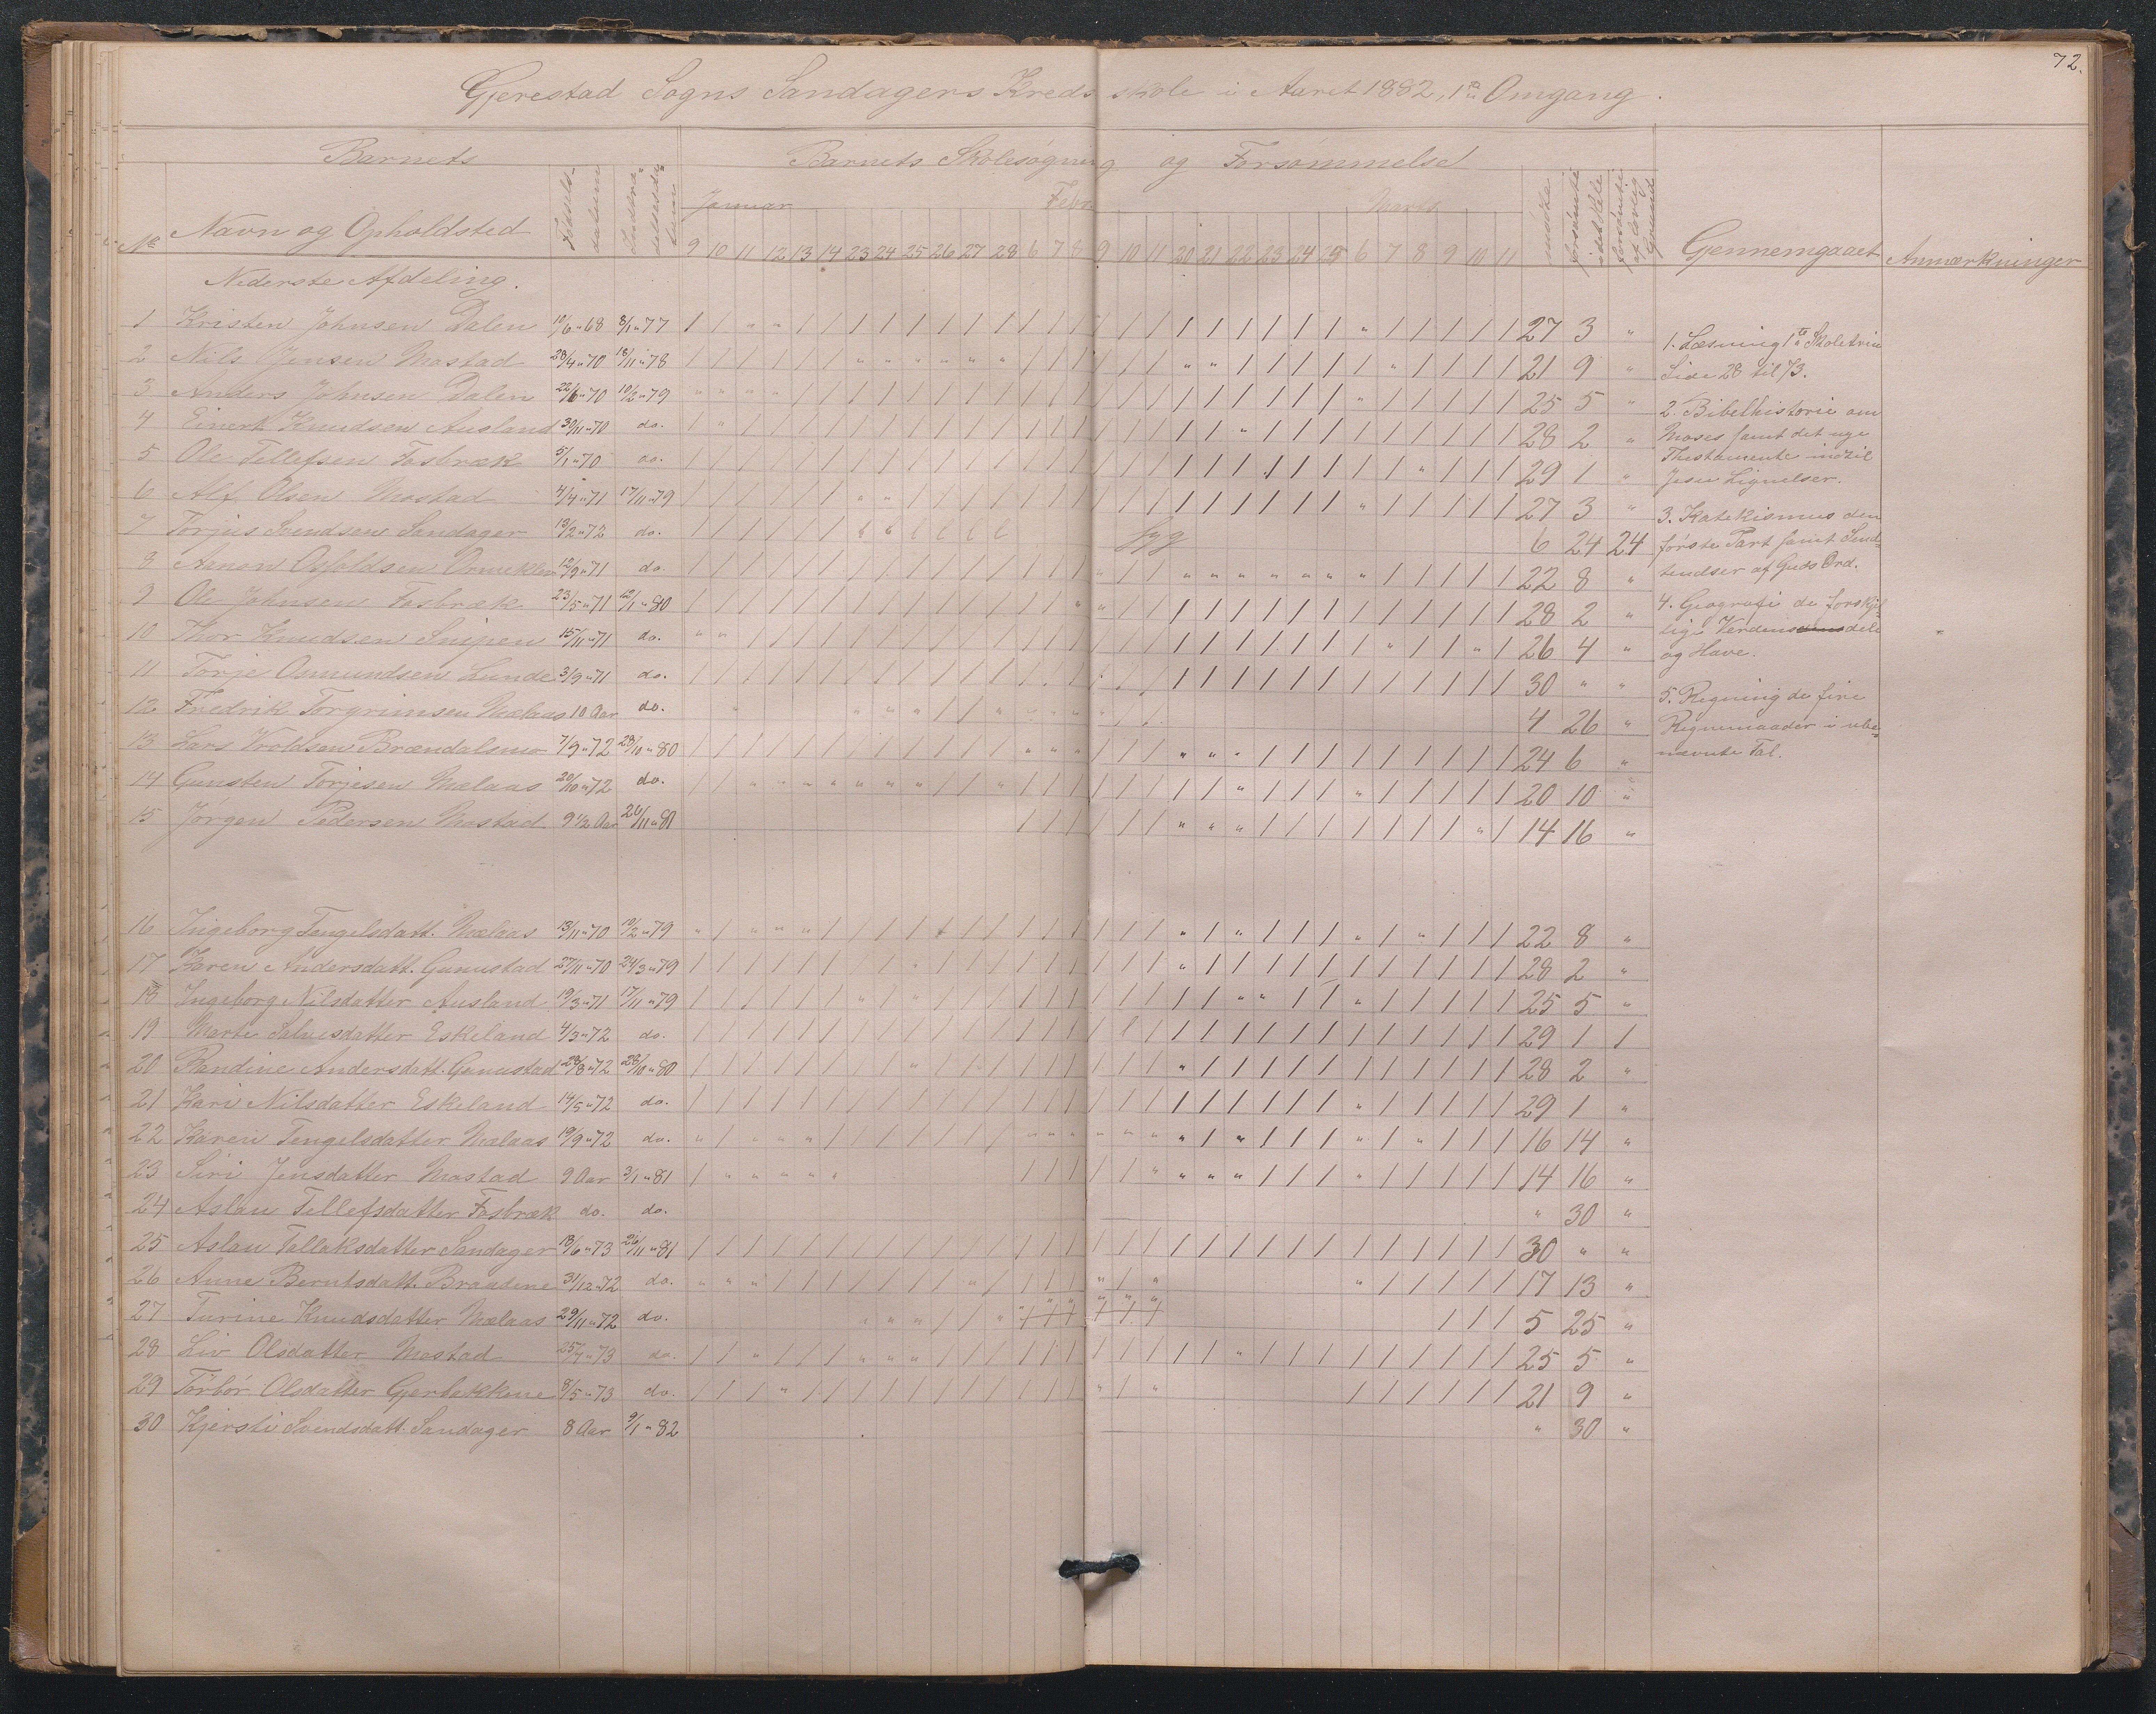 72.
Gjerestad Sogns Sandagers Kredsskole i Aaret 1882, 1ste Omgang.
Barnets Barnets Skolesøgning og Forsømmelse
Januar Febr. Marts
No Navn og Opholdsted Fødsels-datum 9 10 11 12 13 14 23 24 25 26 27 28 6 7 8 9 10 11 20 21 22 23 24 25 6 7 8 9 10 11 Gjennemgaaet Anmærkninger
Nederste Afdeling.
1 Kristen Johnsen Dalen 10/6 " 68 8/1 " 77 27 3 "
2 Nils Jensen Mostad 28/4 " 70 18/11 " 78 21 9 "
3 Anders Johnsen Dalen 22/6 " 70 10/2 " 79 25 5 "
4 Einert Knudsen Ausland 30/11 " 70 do. 28 2 "
5 Ole Tellefsen Fosbræk 5/1 " 70 do. 29 1 "
6 Alf Olsen Mostad 4/4 " 71 17/11 " 79 27 3 "
7 Torjus Svendsen Sandager 13/2 " 72 do. syg 6 24 24
8 Aanon 12/9 " 71 do. 22 8 "
9 Ole Johnsen Fosbræk 23/5 " 71 12/1 " 80 28 2 "
10 Thor Knudsen Snipen 15/11 " 71 do. 26 4 "
11 Torje Osmundsen Lunde 3/9 " 71 do. 30 " "
12 Fredrik Torgrimsen Mælaas 10 Aar do. 4 26 "
13 Lars Brændalsmo 7/9 " 72 28/10 " 80 24 6 "
14 Gunsten Torjesen Mælaas 20/10 " 72 do. 20 10 "
15 Jørgen Pedersen Mostad 9 1/2 Aar 26/11 " 81 14 16 "
16 Ingeborg Tengelsdatt. Mælaas 13/11 " 70 10/2 " 79 22 8 "
17 Karen Andersdatt. Gunnstad 27/11 " 70 24/3 " 79 28 2 "
18 Ingeborg Nilsdatter Ausland 19/3 " 71 17/11 " 79 25 5 "
19 Marte Salvesdatter Eskeland 4/3 " 72 do. 29 1 1
20 Randine Andersdatt. Gunnstad 28/8 " 72 28/10 " 80 28 2 "
21 Kari Nilsdatter Eskeland 14/5 " 72 do. 29 1 "
22 Karen Tengelsdatter Mælaas 19/9 " 72 do. 16 14 "
23 Siri Jensdatter Mostad 9 Aar 3/1 " 81 14 16 "
24 Aslau Tellefsdatter Fosbræk do. do. " 30 "
25 Aslau Tallaksdatter Sandager 18/6 " 73 26/11 " 81 30 " "
26 Anne Berntsdatt. Braadene 31/12 " 72 do. 17 13 "
27 Turine Knudsdatter Mælaas 29/11 " 72 do. 5 25 "
28 Liv Olsdatter Mostad 25/7 " 73 do. 25 5 "
29 Torbør Olsdatter Gjerbekkene 8/5 " 73 do. 21 9 "
30 Kjersti Svendsdatt. Sandager 8 Aar 9/1 " 82 " 30 "
1. Læsning 1ste Skoletrin
Side 28 til 73.
2. Bibelhistorie om
Moses samt det nye
Thestamente indtil
Jesu Lignelser.
3. Katekismus den
første Part samt Sen-
tendser af Guds Ord.
4. Geografi de forskjel
lige Verdensdele
og Have.
5. Regning de fire
Regnemaader i ube-
nævnte Tal.